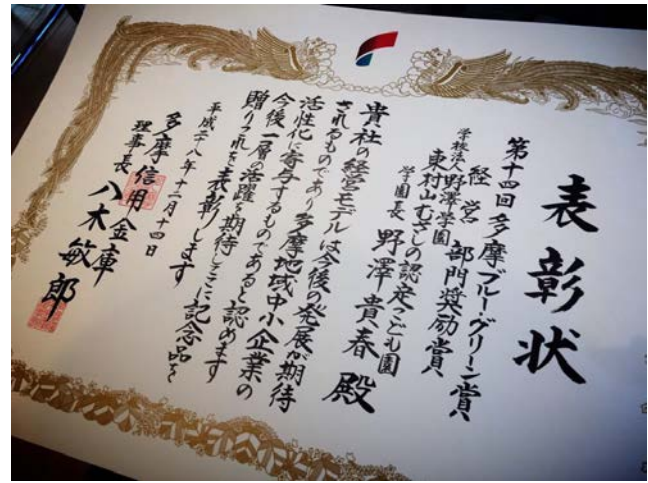 表彰状
第十四回 多摩ブルー・グリーン賞
経営部門奨励賞
学校法人野澤学園
東村山むさしの認定こども園
学園長 野澤貴春 殿
貴社の経営モデルは今後の発展が期待
されるものであり多摩地域中小企業の
活性化に寄与するものであると認めます
今後一層の活躍を期待しここに記念品を
贈りこれを表彰します
平成二八年十二月十四日
多摩信用金庫
理事長 八木敏郎